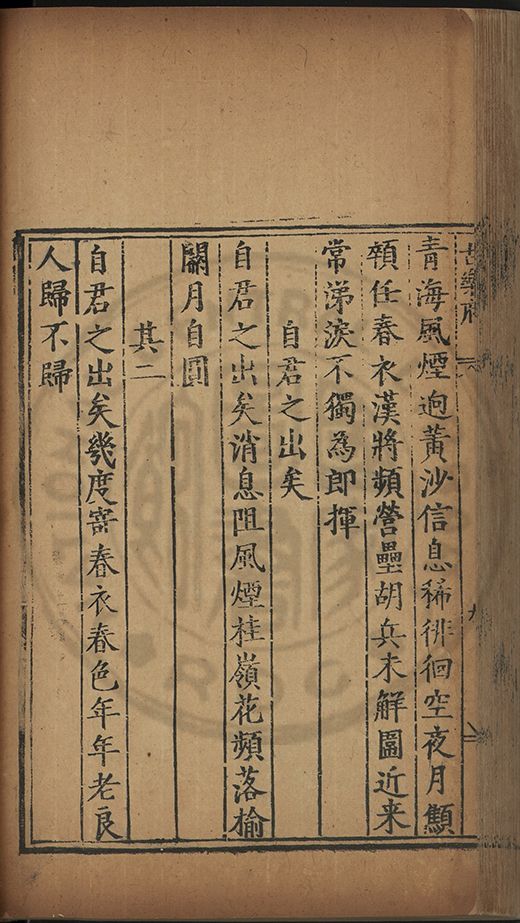 古樂府
青海風煙迥黃沙信息稀徘徊空夜月顦
顇任春衣漢將頻營壘胡兵未解圍近来
常涕淚不獨為即揮
自君之出矣
自君之出矣消息阻風煙桂嶺花頻落榆
關月自圓
其二
自君之出矣幾度寄春衣春色年年老良
人歸不歸